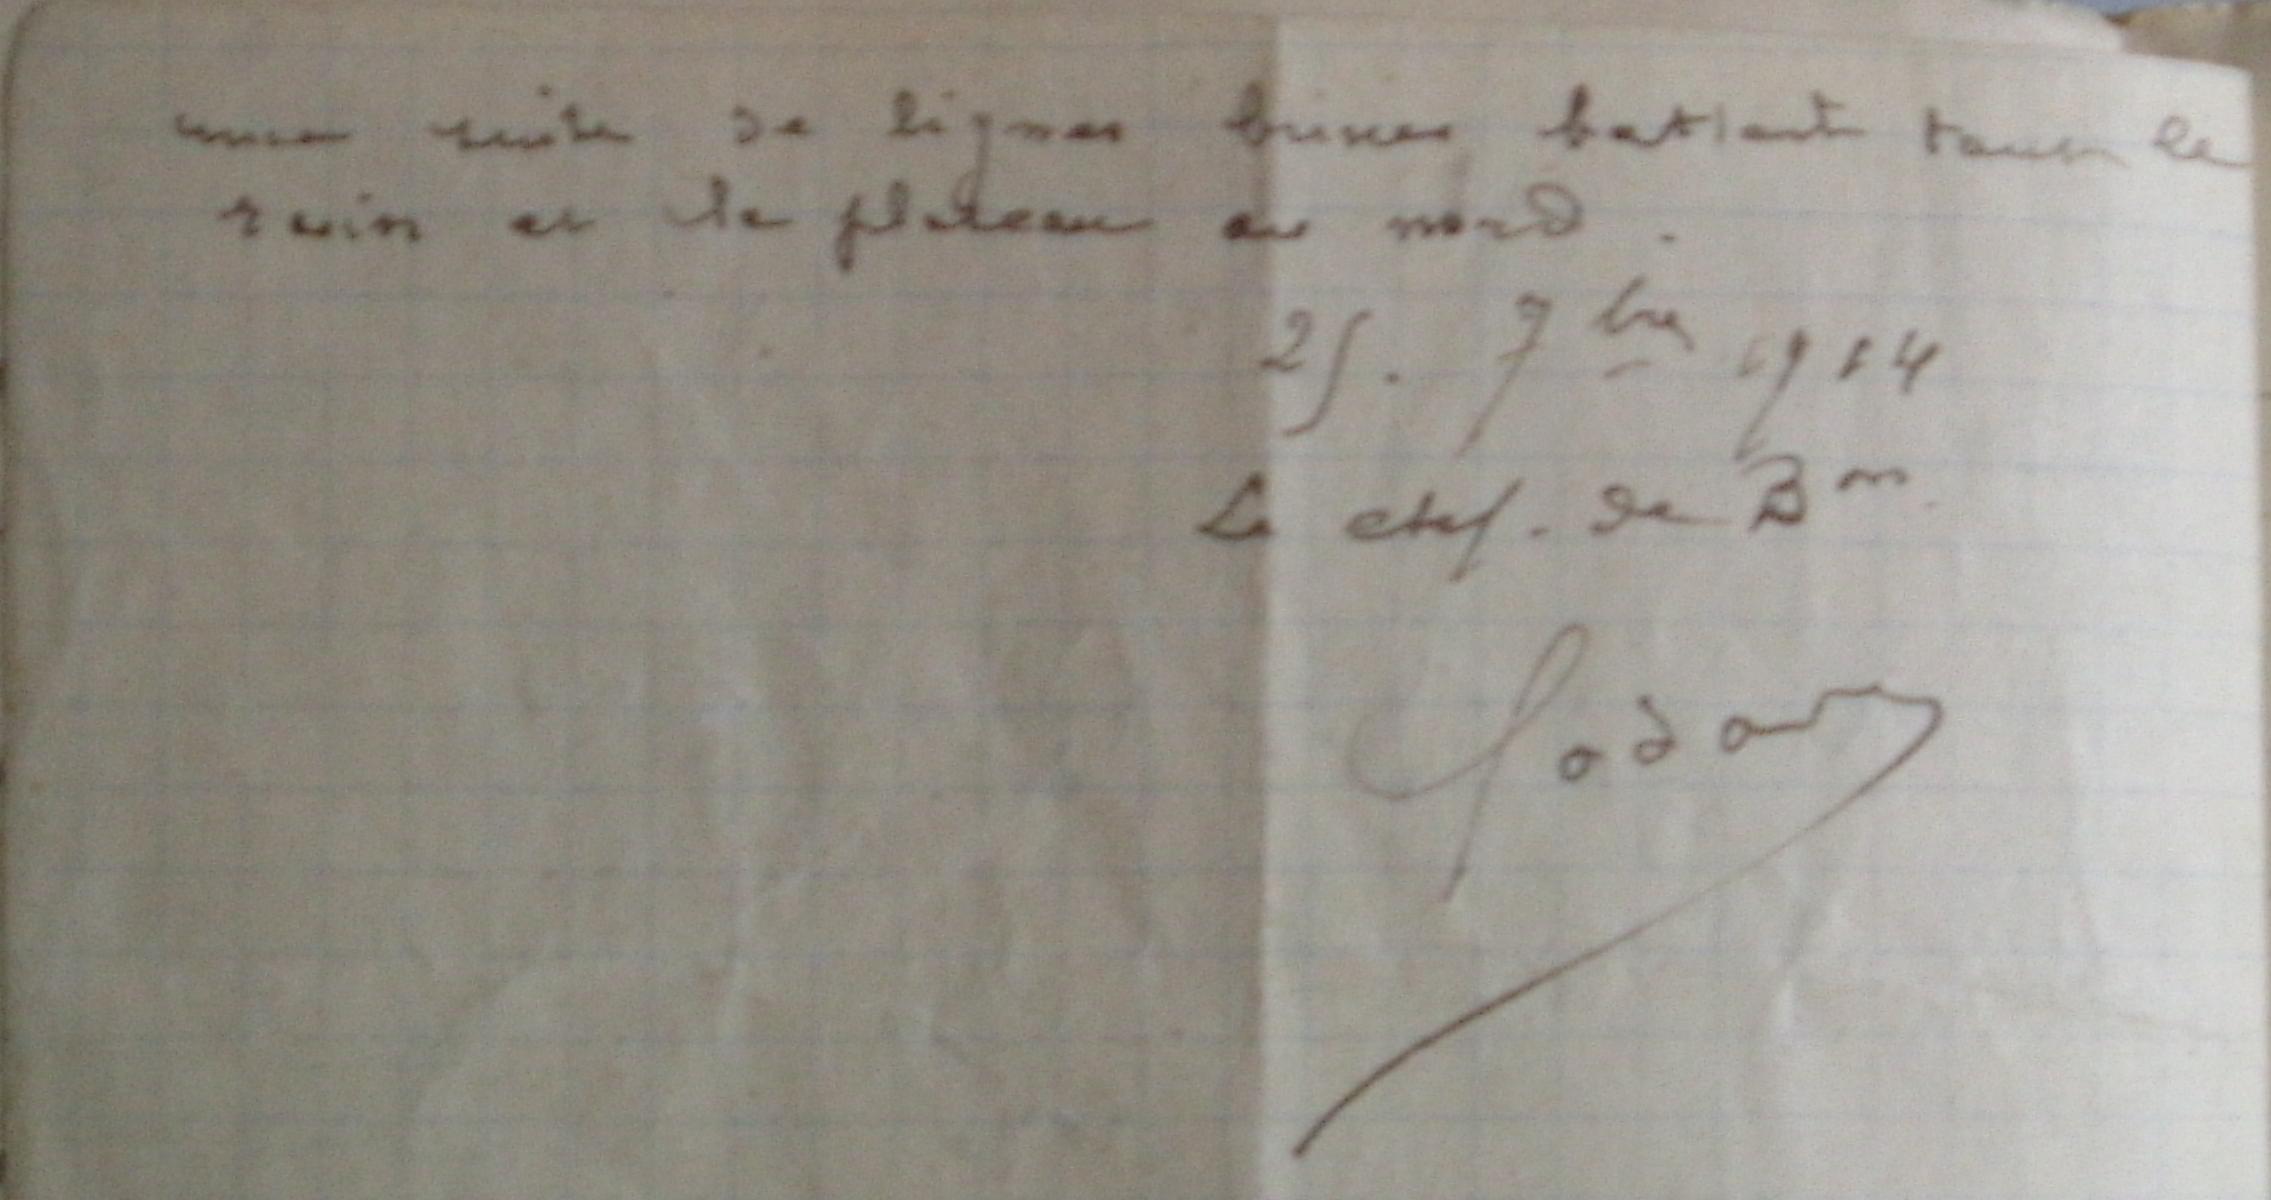 une suite de lignes brisées battant le
ravin et le plateau au nord.
25. 7bre 1914
Le chef. de Bon